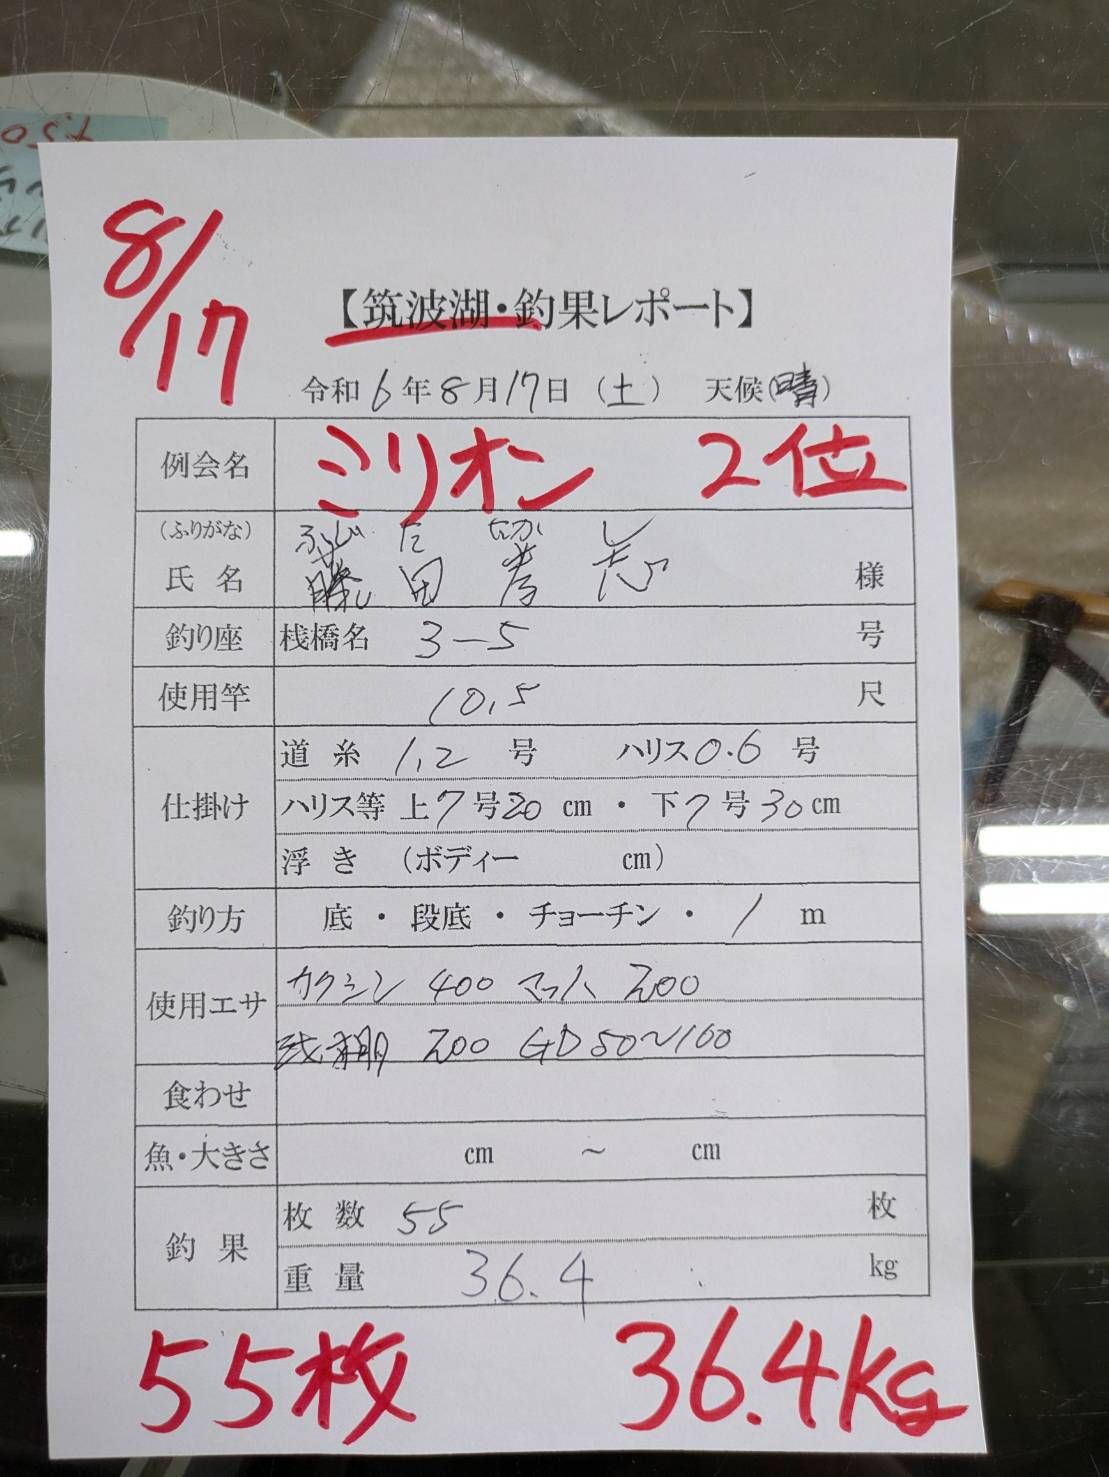 8/17
【筑波湖・釣果レポート】
令和6年8月17日（土） 天候（晴）
例会名 ミリオン 2位
（ふりがな） ふじ た たか し
氏名 藤田孝志 様
釣り座 桟橋名 3-5 号
使用竿 10.5 尺
仕掛け 道糸 1.2 号 ハリス 0.6 号
ハリス等 上7号20cm・下7号30cm
浮き （ボディー cm）
釣り方 底・段底・チョーチン・1m
使用エサ カクシン 400 マッハ 200
浅棚 200 GD50〜100
食わせ
魚・大きさ cm 〜 cm
釣果 枚数 55 枚
重量 36.4 kg
55枚 36.4kg